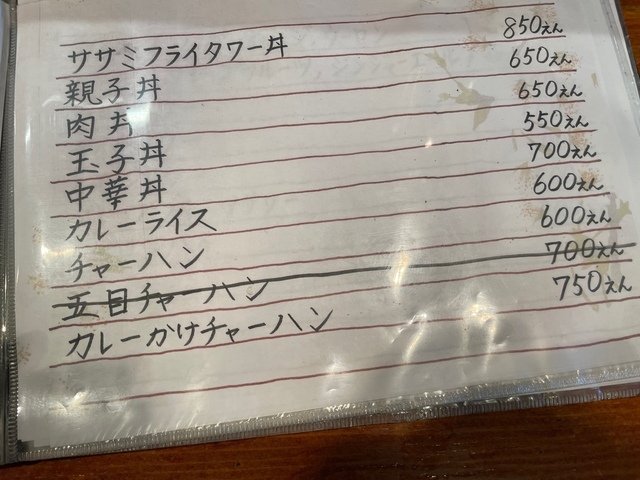 ササミフライタワー丼 850えん
親子丼 650えん
肉丼 650えん
玉子丼 550えん
中華丼 700えん
カレーライス 600えん
チャーハン 600えん
五目チャーハン 700えん
カレーかけチャーハン 750えん